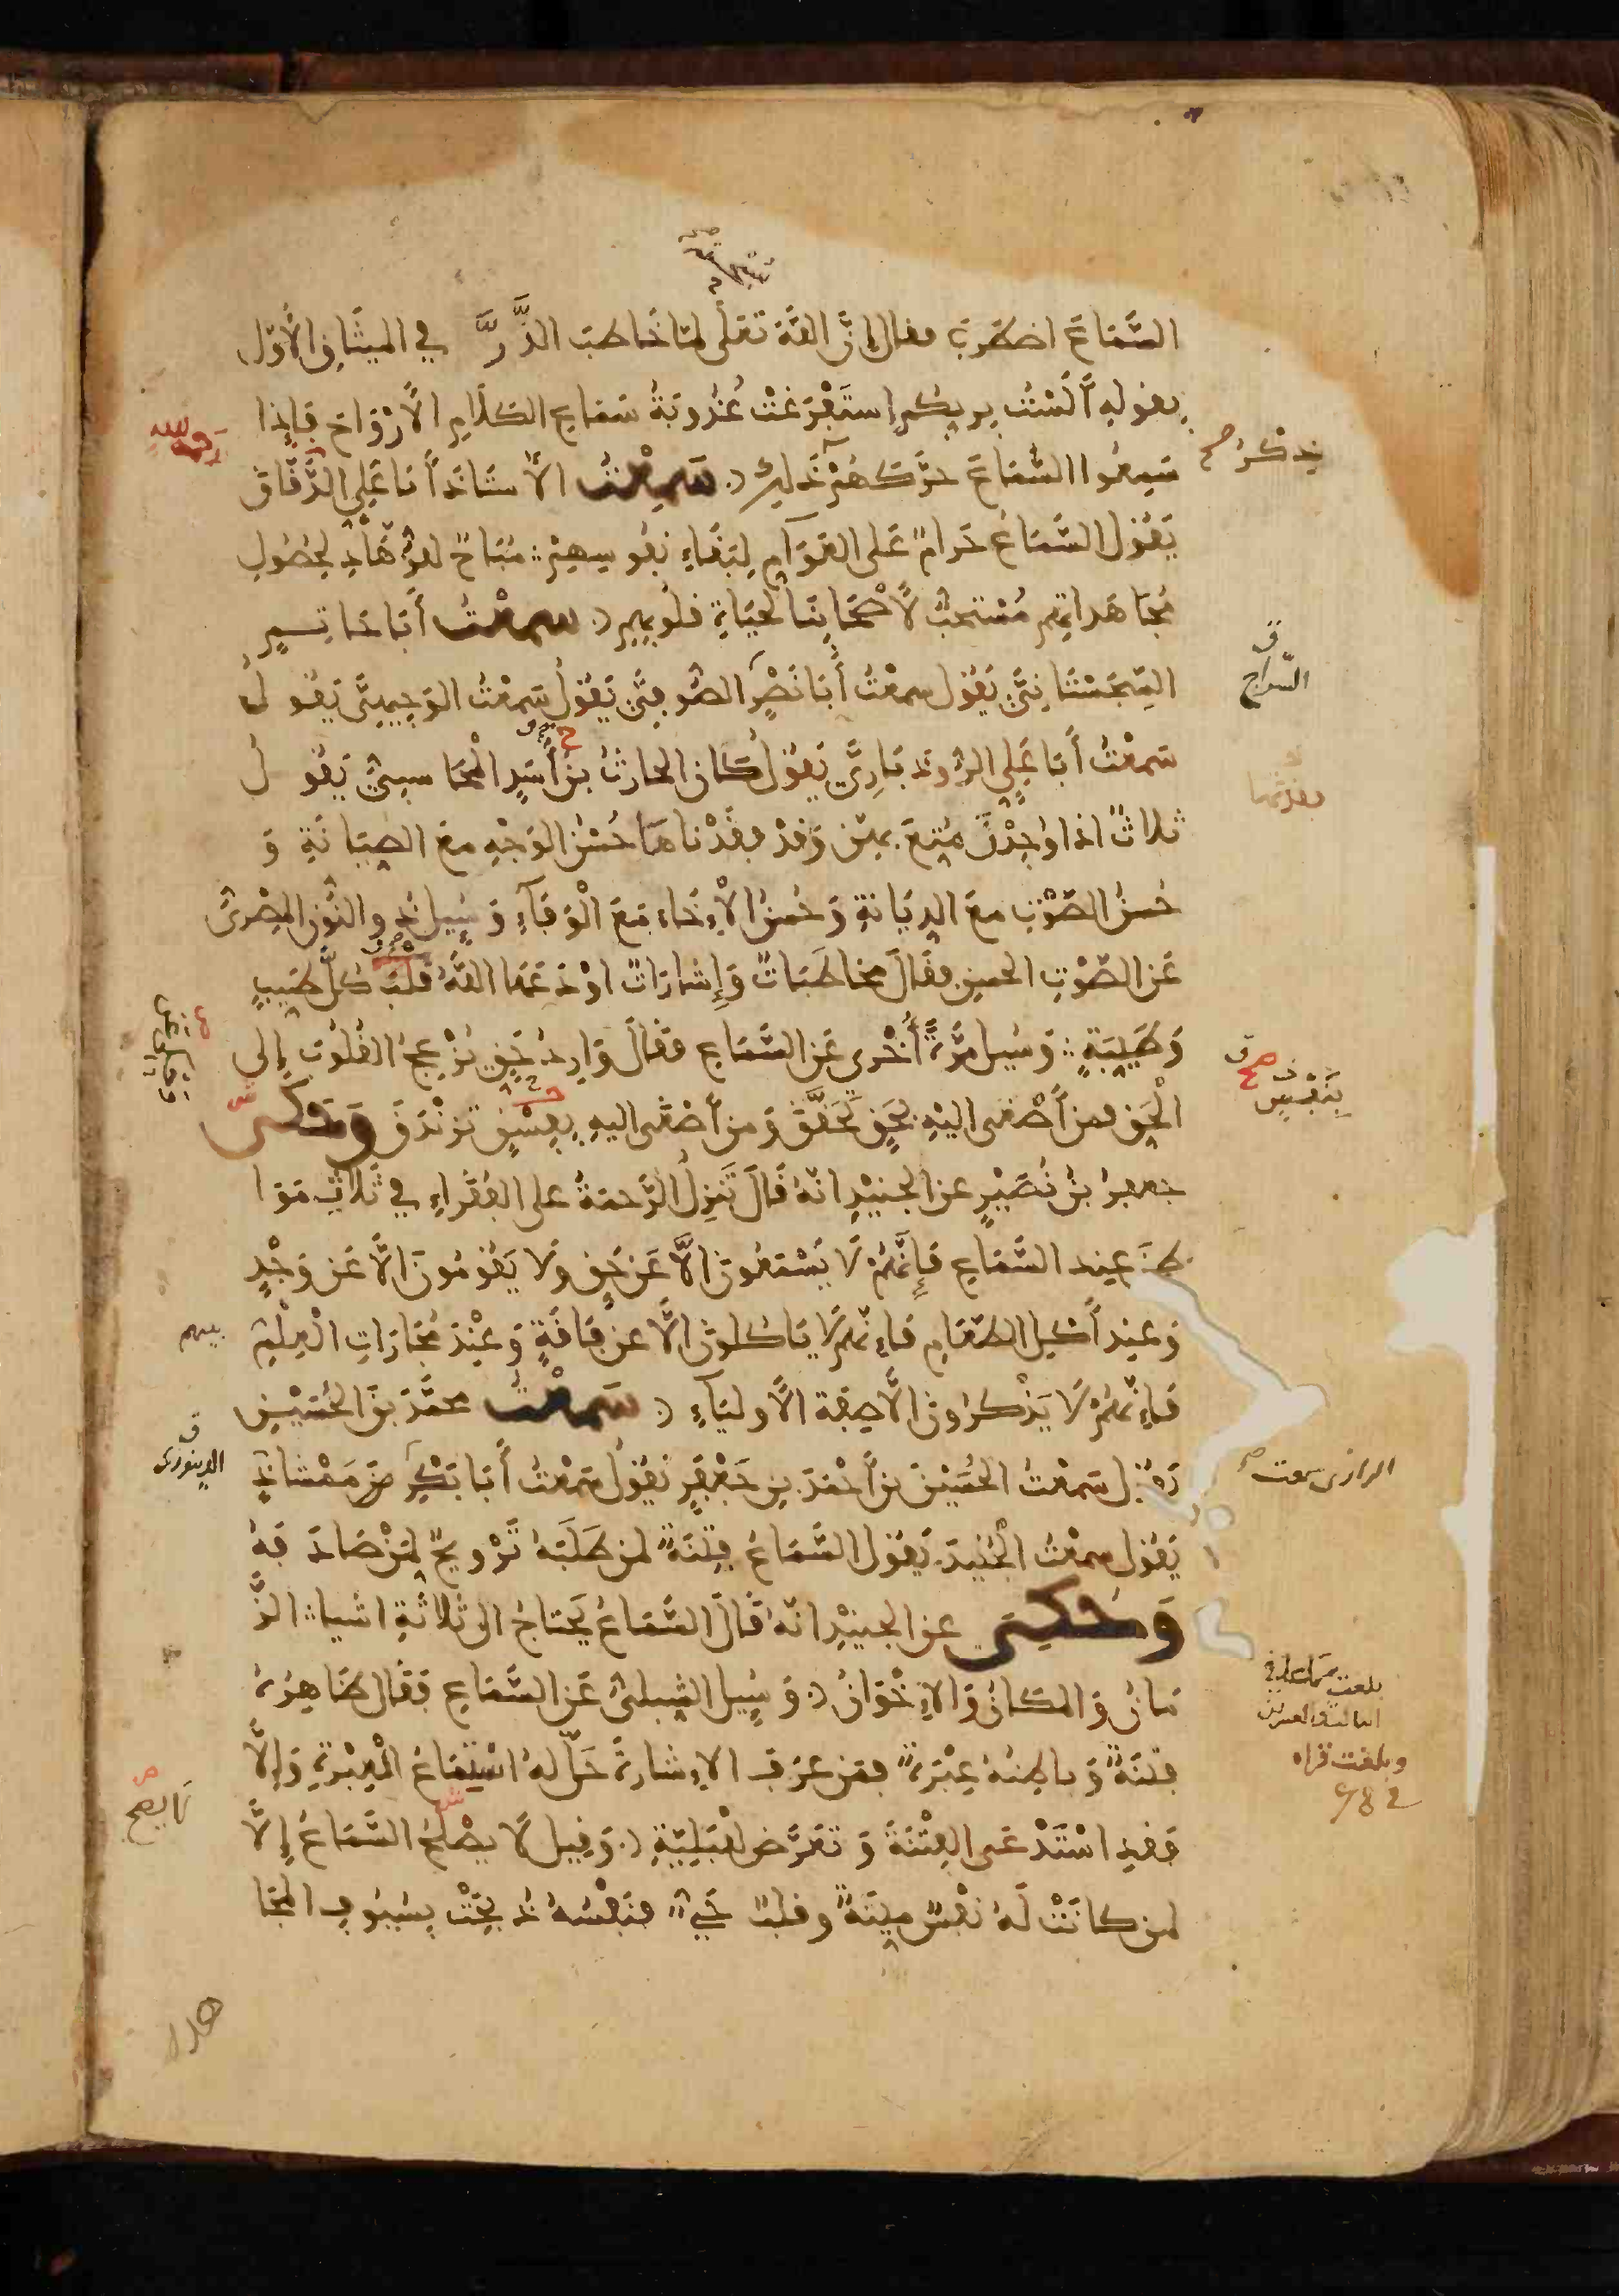 السَّمَاعَ اضطَرَبَ فقال إنَّ اللَّهَ تَعَلَى لمّا خَاطَبَ الذَّرَّ في الميثَاقِ الأوّلِ
بِقولِهِ أَلَسْتُ بِرَبِّكُم اِستَفْرَغَتْ عُذُوبَةُ سَمَاعِ الكَلَامِ الأَرْوَاحَ فَإِذا
رحمه الله
سَمِعُوا السَّمَاعَ حَرَّكَهُمْ ذَلِكَ سَمِعْتُ الأُستَاذَ أَبَا عَلِي الدَّقَّاقَ
ذكرُ
يَقُولُ السَّمَاعُ حَرامٌ عَلى العَوَامِ لِبَقَاءِ نُفُوسِهِمْ مُبَاحٌ للزُّهَّادِ لِحُصُولِ
مُجَاهَدَاتِهِم مُسْتحبٌّ لأَصْحَابِنَا لحيَاةِ قلُوبِهِم سمعْتُ أَبَا حَاتِمٍ
السِّجَسْتَانِيَّ يَقُولُ سمعْتُ أَبَا نَصْرٍ الصُّوفِيَّ يَقُولُ سَمعْتُ الوَجِيهِيَّ يَقُولُ
السّراج
سَمعْتُ أَبَا عَلِي الرُّوذبَارِيَّ يَقُولُ كَانَ الحارثُ بنُ أَسَدٍ الْمُحَاسبِيُّ يَقُولُ
ثلاثٌ اذا وُجِدْنَ مُتِعَ بهِنّ وَقَدْ فَقَدْناهَا حُسْنُ الوَجْهِ معَ الصِيَانَةِ وَ
حُسنُ الصَّوْتِ معَ الدِيَانةِ وَحُسنُ الْإِخَاءِ مَعَ الْوَفَآءِ وَسُيِلَ ذو النُّونِ المِصْرىُّ
عَنِ الصَّوْتِ الحسنِ فقَالَ مخاطَبَاتٌ وَإِشَارَاتٌ اوْدَعَهَا اللَّهُ قلْبَ كلِّ طَيِّبٍ
وَطَيِّبَةٍ وَسُيِلَ مَرَّةً أُخْرى عَنِ السَّمَاعِ فقَالَ وَارِدُ حَقٍّ يُزْعِجُ القُلُوبَ إِلى
الْحَقِّ فمن أَصْغَى اليْهِ بحَقٍّ تَحَقَّقَ وَمن أَصْغَى اليهِ بِنَفْسٍ تَزَنْدَقَ وَحَكى
بِنَفْسٍ
جعفرُ بنُ نُصَيْرٍ عن الجنيْدِ انّهُ قَالَ تَنْزِلُ الرَّحمَةُ على الفُقَراءِ في ثَلَاثَةِ مَوَا
طِنَ عِند السَّمَاعِ فَإِنَّهُمْ لَا يَسْمَعُونَ الَّا عَنْ حَقٍّ وَلَا يَقُومُونَ الَّا عَن وَجْدٍ
وَعِندَ أَكلِ الطعَامِ فَإِنّهُمْ لَا يَاكُلُونَ الَّا عن فَاقَةٍ وَعِنْدَ مُجَارَاتِ الْعِلْمِ
فَإِنّهُمْ لَا يَذْكُرُونَ الَّا صِفةَ الأَوليَآءِ سَمعْتُ محمَّدَ بنَ الحُسَيْنِ
يَقُولُ سَمعْتُ الحُسَيْنَ بنَ أَحْمَدَ بنِ جَعْفَرٍ يَقُولُ سَمِعْتُ أَبَا بَكْرٍ بنَ مَمْشَاذٍ
الرازى سمعت
الدينورى
يَقُولُ سمعْتُ الْجُنَيدَ يَقُولُ السَّمَاعُ فِتْنَةٌ لمن طَلَبَهُ تَرْوِيحٌ لِمَنْ صَادَفَهُ
وَحُكِىَ عن الجنيْدِ انّهُ قَالَ السَّمَاعُ يَحتَاجُ الى ثَلَاثَةِ اشيا الزَّ
مَانُ وَالمكَانُ وَالإِخْوَانُ وَسُيِلَ الشِبلىُّ عَنِ السَّمَاعِ فقَال ظَاهِرُهُ
بلغت سماعا في الثالث والعشرين
وبلغت قراه
فِتنَةٌ وَباطِنُهُ عِبْرَةٌ فمن عَرَفَ الإِشَارَةَ حَلَّ لهُ اسْتِمَاعُ الْعِبْرَةِ وَإِلَّا
فَقدِ اسْتَدْعَى الفِتْنَةَ وَتعَرَّضَ لِلبَلِيّةِ وَقِيلَ لَا يصْلحُ السَّمَاعُ إِلَّا
لَا يصح
لمن كَانَتْ لَهُ نَفْسٌ مَيّتَةٌ وقلبٌ حَيٌّ فنَفْسُهُ ذُبِحَتْ بِسُيُوفِ المجَا
هدا